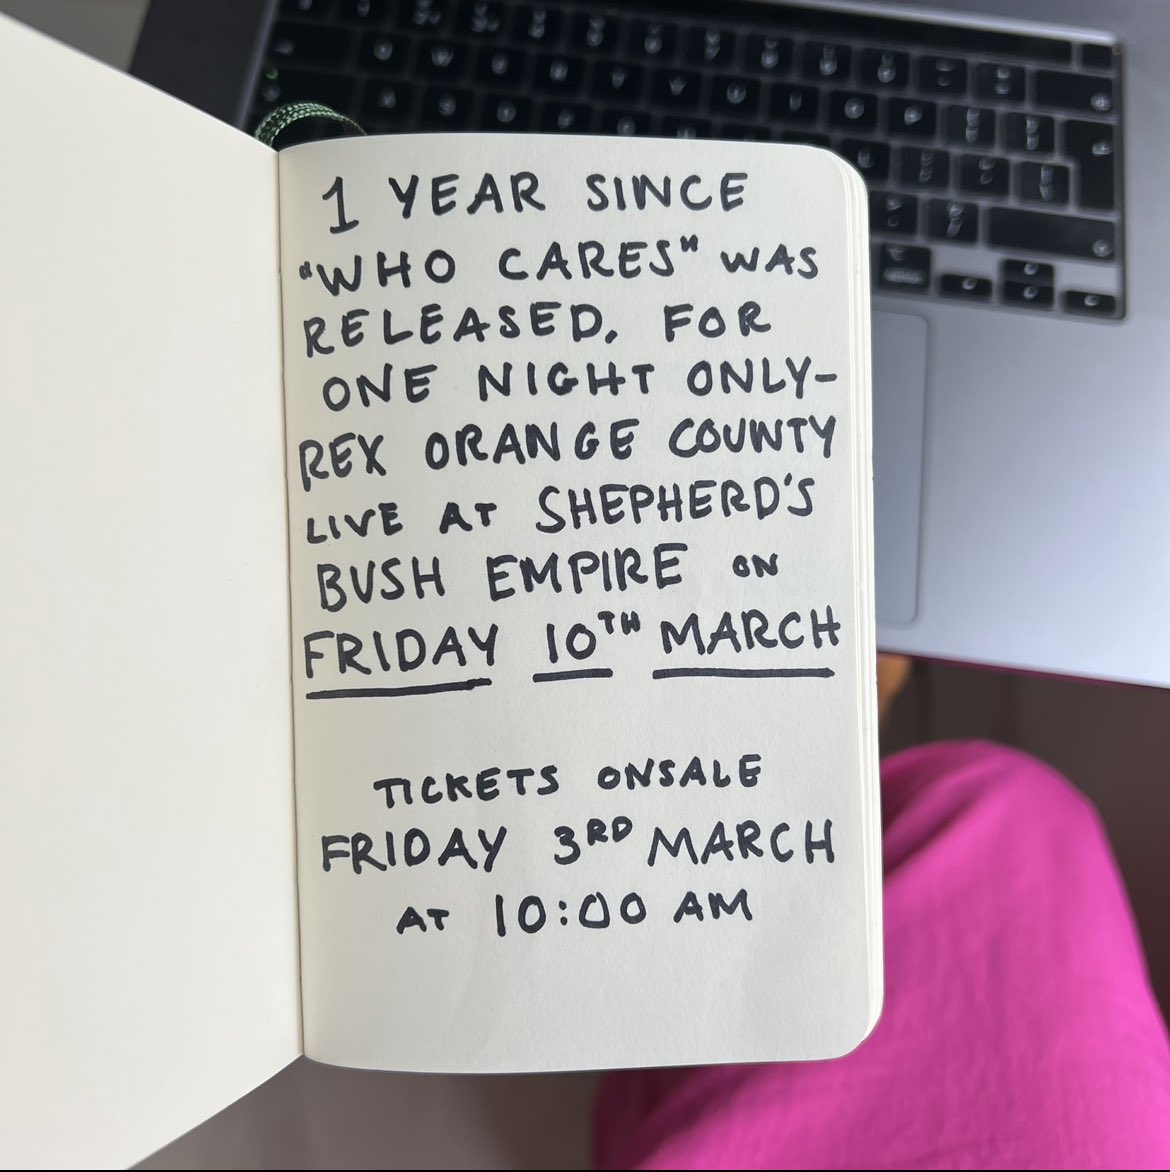 1 YEAR SINCE
"WHO CARES" WAS
RELEASED. FOR
ONE NIGHT ONLY-
REX ORANGE COUNTY
LIVE AT SHEPHERD'S
BUSH EMPIRE ON
FRIDAY 10TH MARCH
TICKETS ONSALE
FRIDAY 3RD MARCH
AT 10:00 AM